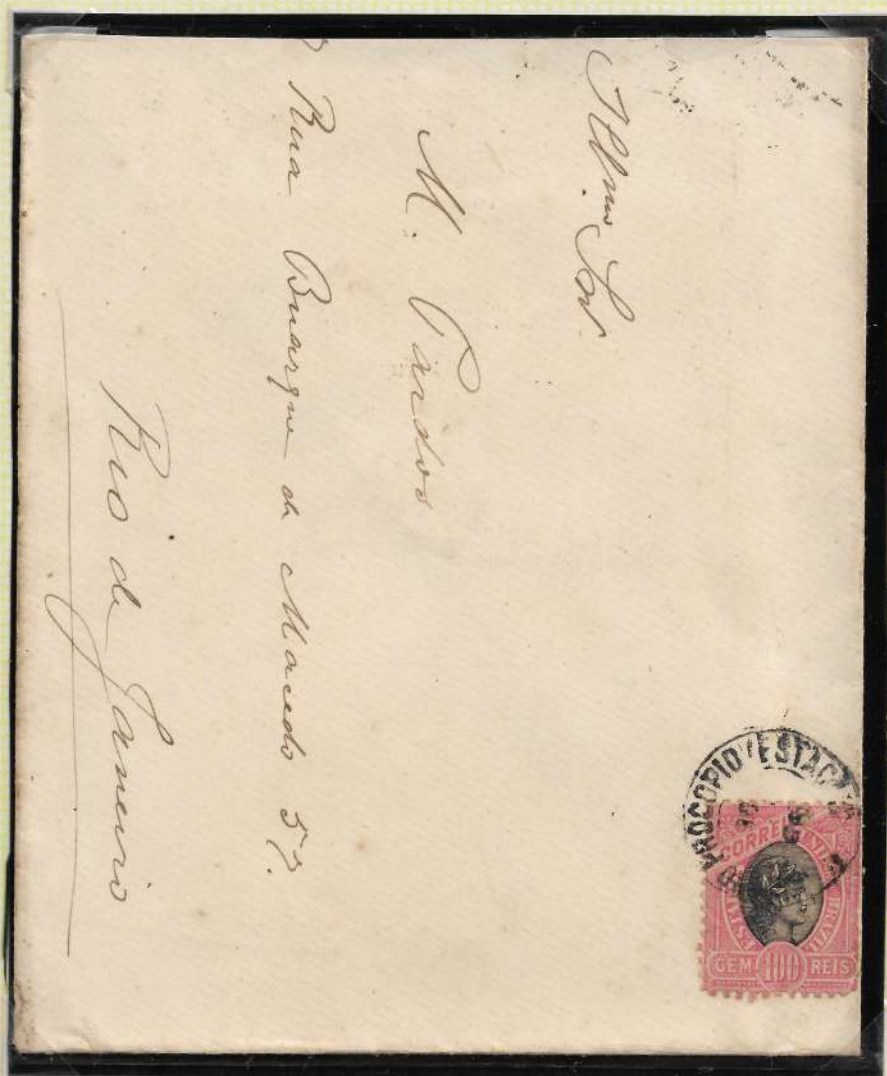 Illmo Snr.
M. Pardos
Rua Buarque de Macedo 57.
Rio de Janeiro
PROCOPIO (ESTAC
CORREIO
BRAZIL
CEM 100 REIS